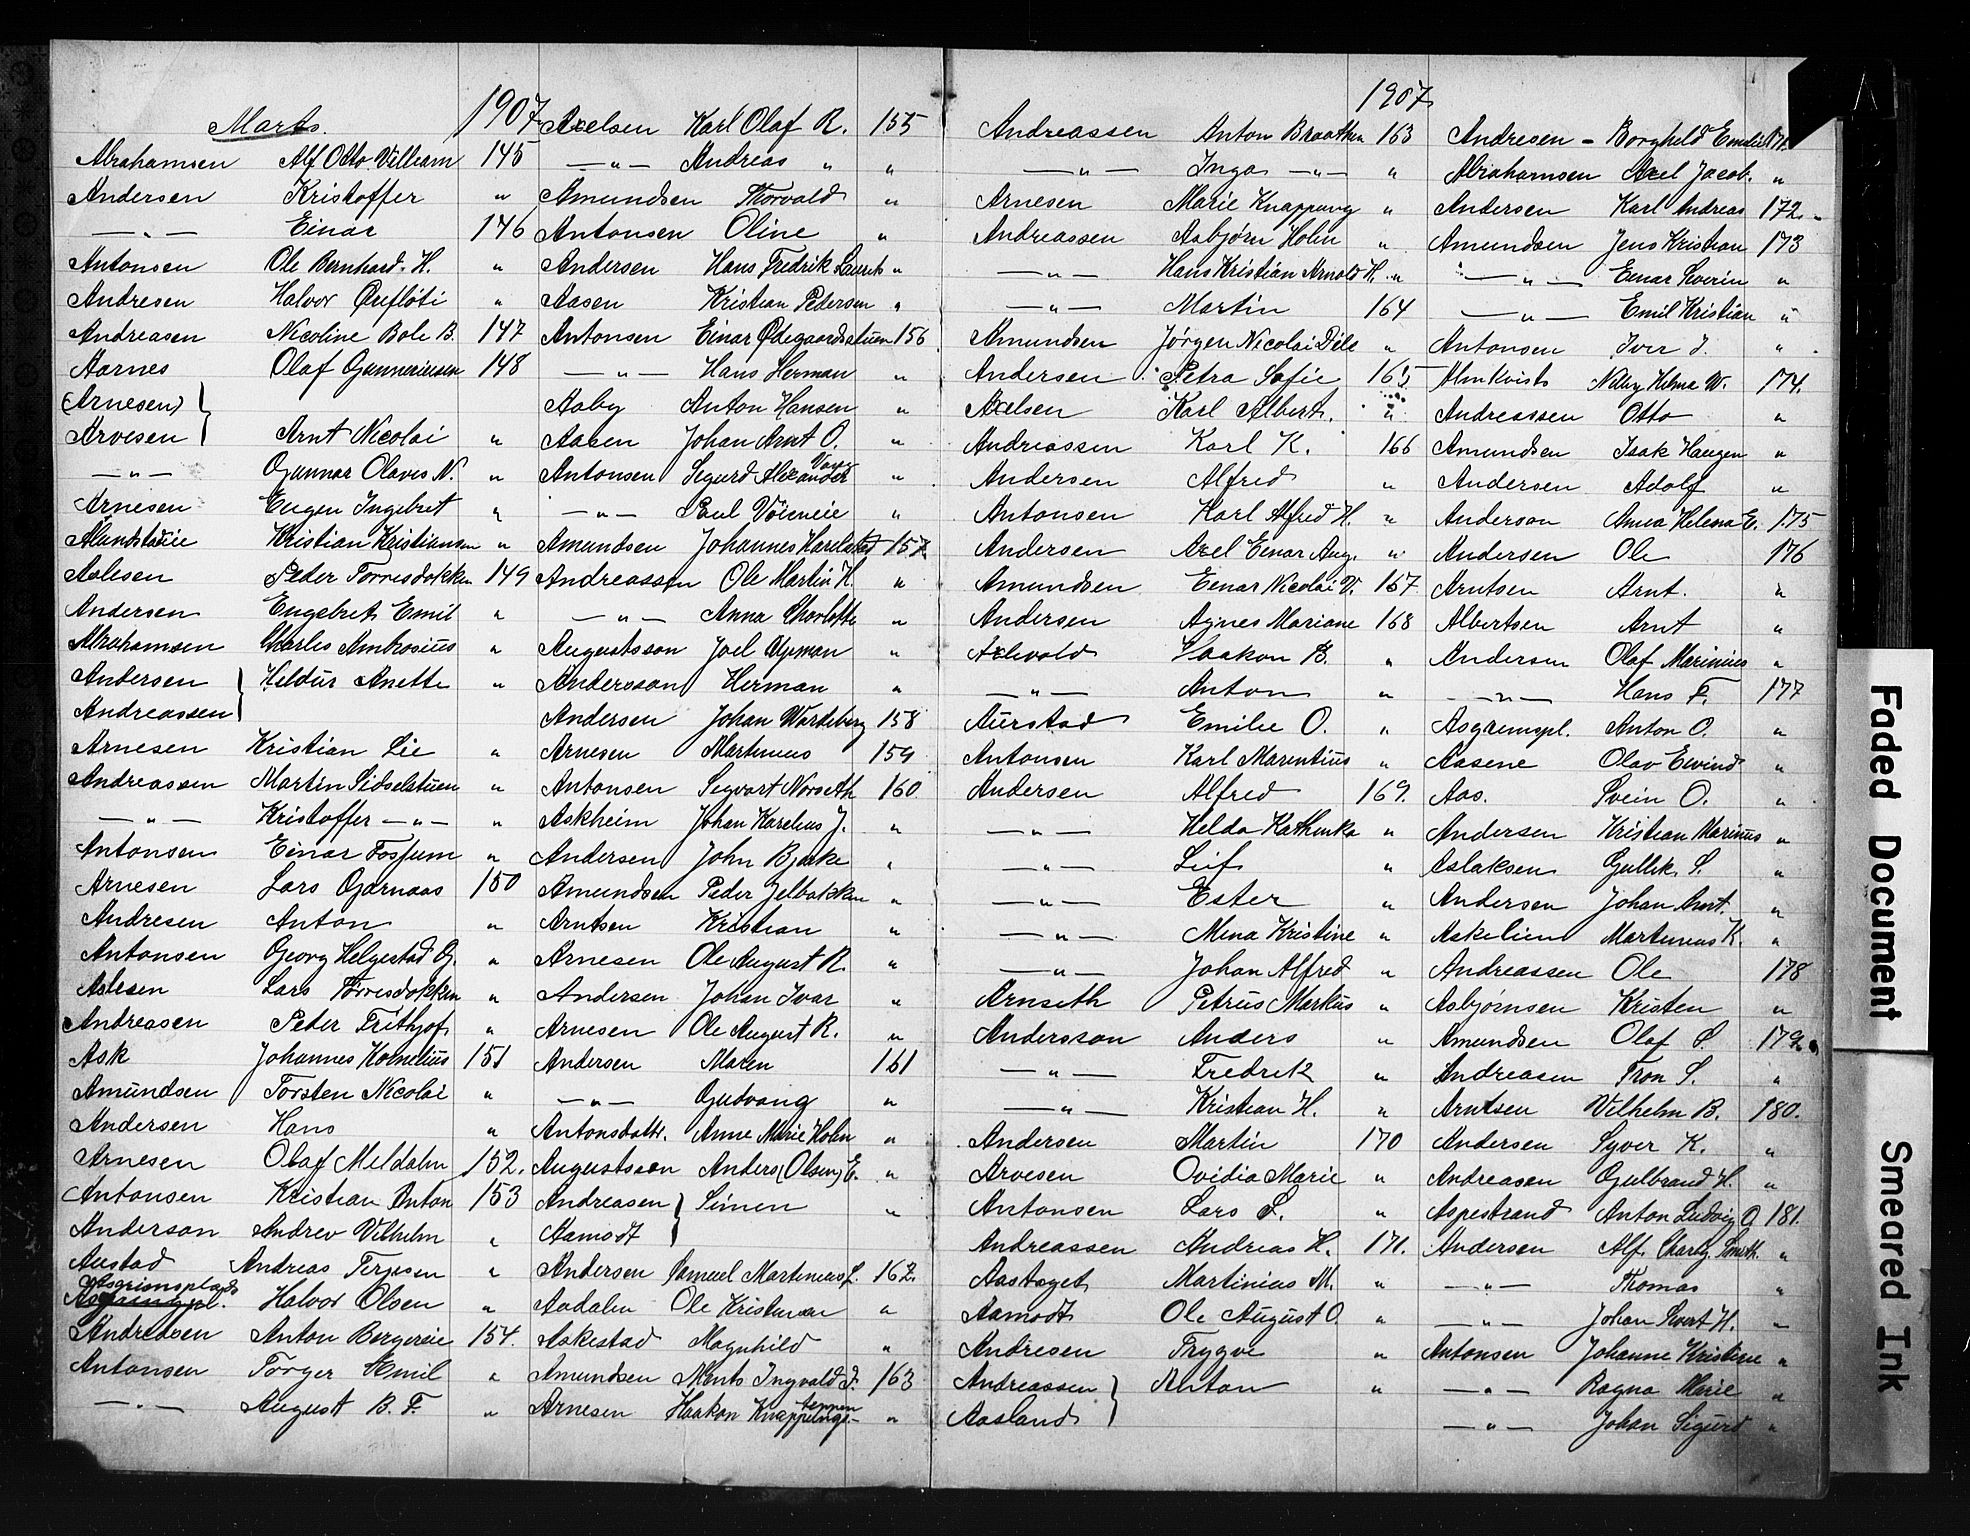 Marts. 1907
Abrahamsen Alf Otto Villiam 145
Andersen Kristoffer "
— " — Einar 146
Antonsen Ole Bernhard. H. "
Andresen Halvor "
Andreasen Nicoline Bole B. 147
Aarnes Olaf Gunneriusen 148
(Arnesen) }
Arvesen } Arnt Nicolai "
— " — Gunnar Olaves N. "
Arnesen Eugen Ingebret "
Kristian Kristiansen "
Aslesen Peder Torrisdokken 149
Andersen Engebret Emil "
Abrahamsen Charles Ambrosius "
Andersen } Heldur Anette "
Andreassen }
Arnesen Kristian Lie "
Andreassen Martin Sidselstuen "
— " — Kristoffer — " — "
Antonsen Einar Fossum "
Arnesen Lars Gjernaas 150
Andresen Anton "
Antonsen Georg Helgestad G. "
Aslesen Lars Torrisdokken "
Andreasen Peder Frithjof "
Ask Johannes Kornelius 151
Amundsen Torsten Nicolai "
Andersen Hans "
Arnesen Olaf Meldalm 152.
Antonsen Kristian Anton 153
Anderson Andrev Vilhelm "
Austad Andreas Terjesen "
Asgrimsplads Halvor Olsen "
Andresen Anton Bergereie 154.
Antonsen Torger Emil "
— " — August B. F. "
Axelsen Karl Olaf R. 155
— " — Andreas " "
Amundsen Thorvald "
Antonsen Oline "
Andersen Hans Fredrik Laurits "
Aasen Kristian Pedersen "
Antonsen Einar Ødegaardsstuen 156
— " — Hans Herman "
Aaby Anton Hansen "
Aasen Johan Arnt O. "
Antonsen Sigurd Alexander "
— " — Paul "
Amundsen Johannes Harelstad 157.
Andreassen Ole Martin H. "
— " — Anna Charlotte "
Augustsson Joel Nyman "
Andersson Herman "
Andersen Johan Wardeberg 158
Arnesen Martinius 159
Antonsen Segvart Norseth 160
Askheim Johan Karelius J. "
Andersen John Bjerke "
Amundsen Peder Jelbakken "
Arntsen Kristian "
Arnesen Ole August R. "
Andersen Johan Ivar "
Arnesen Ole August R. "
Andersen Maren 161
— " — Gudvang "
Antonsdattr. Anne Marie Holm "
Augustsson Anders (Olsen) E. "
Andreasen } Simen "
Aamodt }
Andersen Samuel Martinius L. 162.
Aadalen Ole Kristensen "
Askestad Magnhild "
Amundsen Ments Ingvald J. 163
Arnesen Haakon "
1907
Andreassen Anton Braathen 163
— " — Inga — " — "
Arnesen Marie Knappang "
Andreassen Asbjørn Holm "
— " — Hans Kristian Arnold H. "
— " — Martin 164
Amundsen Jørgen Nicolai Dile "
Andersen Petra Sofie 165
Axelsen Karl Albert. "
Andreassen Karl K. 166
Andersen Alfred "
Antonsen Karl Alfred H. "
Andersen Axel Einar Aug. "
Amundsen Einar Nicolai V. 167
Andersen Agnes Mariane 168
Axlevold Haakon B. "
— " — Anton "
Aurstad Emilie O. "
Antonsen Karl Marentius "
Andersen Alfred 169.
— " — Helda Kathinka "
— " — Leif "
— " — Ester "
— " — Mina Kristine "
— " — Johan Alfred "
Arnseth Petrus Markus "
Andersson Anders "
— " — Fredrik "
— " — Kristian H. "
Andersen Martin 170
Arvesen Ovidia Marie "
Antonsen Lars L. "
Andreassen Andreas H. 171.
Aastoget Martinius M. "
Aamodt Ole August O. "
Andresen Trygve "
Andreassen } Anton "
Aasland }
Andresen - Borghild Emilie 171.
Abrahamsen Axel Jacob. "
Andersen Karl Andreas 172.
Amundsen Jens Kristian 173
— " — Einar Severin "
— " — Emil Kristian "
Antonsen Iver I. "
Almkvist Nelly Helma W. 174.
Andreassen Otto "
Amundsen Isak Haugen "
Andersen Adolf "
Anderson Anna Helena E. 175
Andersen Ole 176
Arntsen Arnt. "
Albertsen Arnt "
Andersen Olaf Marinius "
— " — Hans F. 177
Asgrimspl. Anton O. "
Aasene Olav Eivind "
Aas. Svein O. "
Andersen Kristian Marinus "
Aslaksen Gullik S. "
Andersen Johan Arnt. "
Askelien Martinius K. "
Andreassen Ole 178
Asbjørnsen Kristen "
Amundsen Olaf S. 179.
Andreasen Tron S. "
Arntsen Vilhelm B. 180.
Andersen Syver K. "
Andreasen Gulbrand H. "
Aspestrand Anton Ludvig O. 181.
Andersen Alf. Charly Smith. "
— " — Thomas "
— " — Johan Sivert H. "
Antonsen Johanne Kristine "
— " — Ragna Marie "
— " — Johan Sigurd "
Faded Document
Smeared Ink